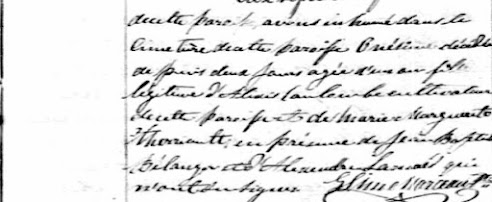 de cette paroisse avons inhumé dans le
Cimetière de cette paroisse Onésime décédé
depuis deux jours agée d'un an fille
légitime d'Alexis cultivateur
de cette paroisse et de Marie Marguerite
Therriault en présence de Jean Baptiste
Bélanger et d'Alexandre qui
n'ont su signer